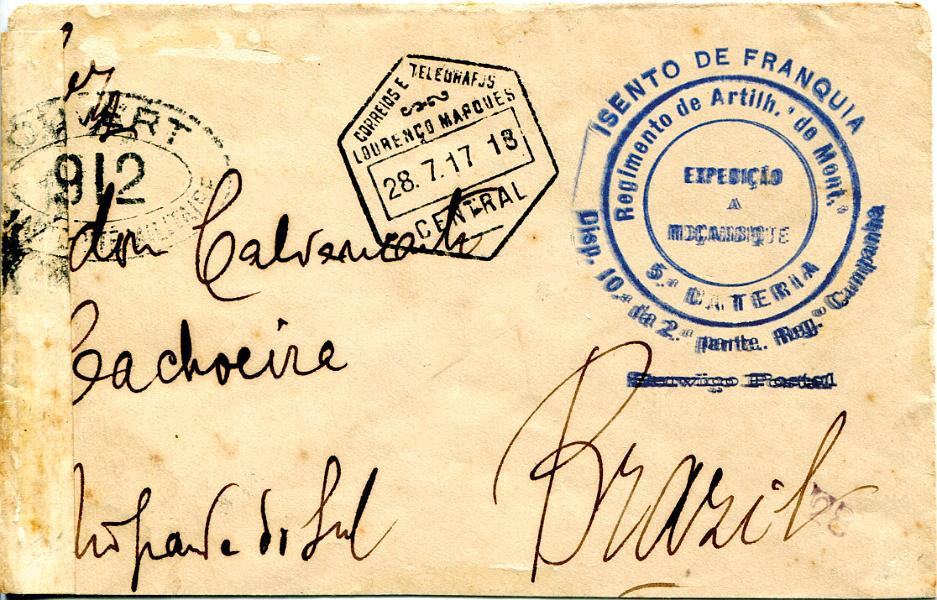 OUVERT
912
CORREIOS E TELEGRAFOS
LOURENÇO MARQUES
28.7.17 13
CENTRAL
ISENTO DE FRANQUIA
Regimento de Artilh.ª de Mont.ª
EXPEDIÇÃO
A
MOÇAMBIQUE
5.ª BATERIA
Disp. 10.ª da 2.ª parte. Reg.º Campanha
Serviço Postal
don Calvancanti
Cachoeira
Rio Grande do Sul
Brazil